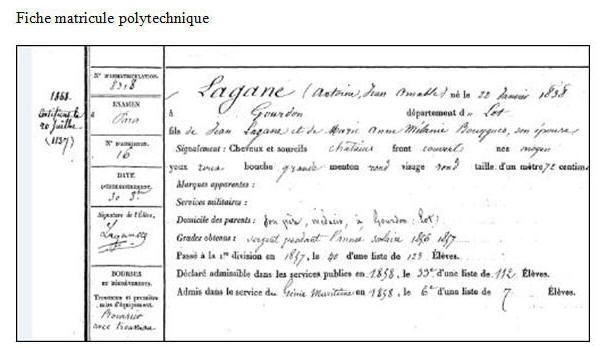 Fiche matricule polytechnique
1868.
20 Juillet
(1137)
N° D'IMMATRICULATION.
8318
EXAMEN
à Paris
N° D'ADMISSION.
16
DATE
30
Signature de l'Élève,
Lagane
BOURSES
ET DÉGRÈVEMENTS.
Trousseau et première
mise d'équipement.
Boursier
avec trousseau
Lagane (Antoine, Jean Amable) né le 22 Janvier 1838
à Gourdon département du Lot
fils de Jean Lagane et de Marie Anne Mélanie Bouygues, son épouse
Signalement : Cheveux et sourcils châtains front couvert nez moyen
yeux bouche grande menton rond visage rond taille d'un mètre 72 centim
Marques apparentes :
Services militaires :
Domicile des parents : son père, médecin, à Gourdon (Lot)
Grades obtenus : sergent pendant l'année scolaire 1856 1857
Passé à la 1re division en 1857, le 40 d'une liste de 123 Élèves.
Déclaré admissible dans les services publics en 1858, le 33e d'une liste de 112 Élèves.
Admis dans le service du Génie Maritime en 1858, le 6e d'une liste de 7 Élèves.